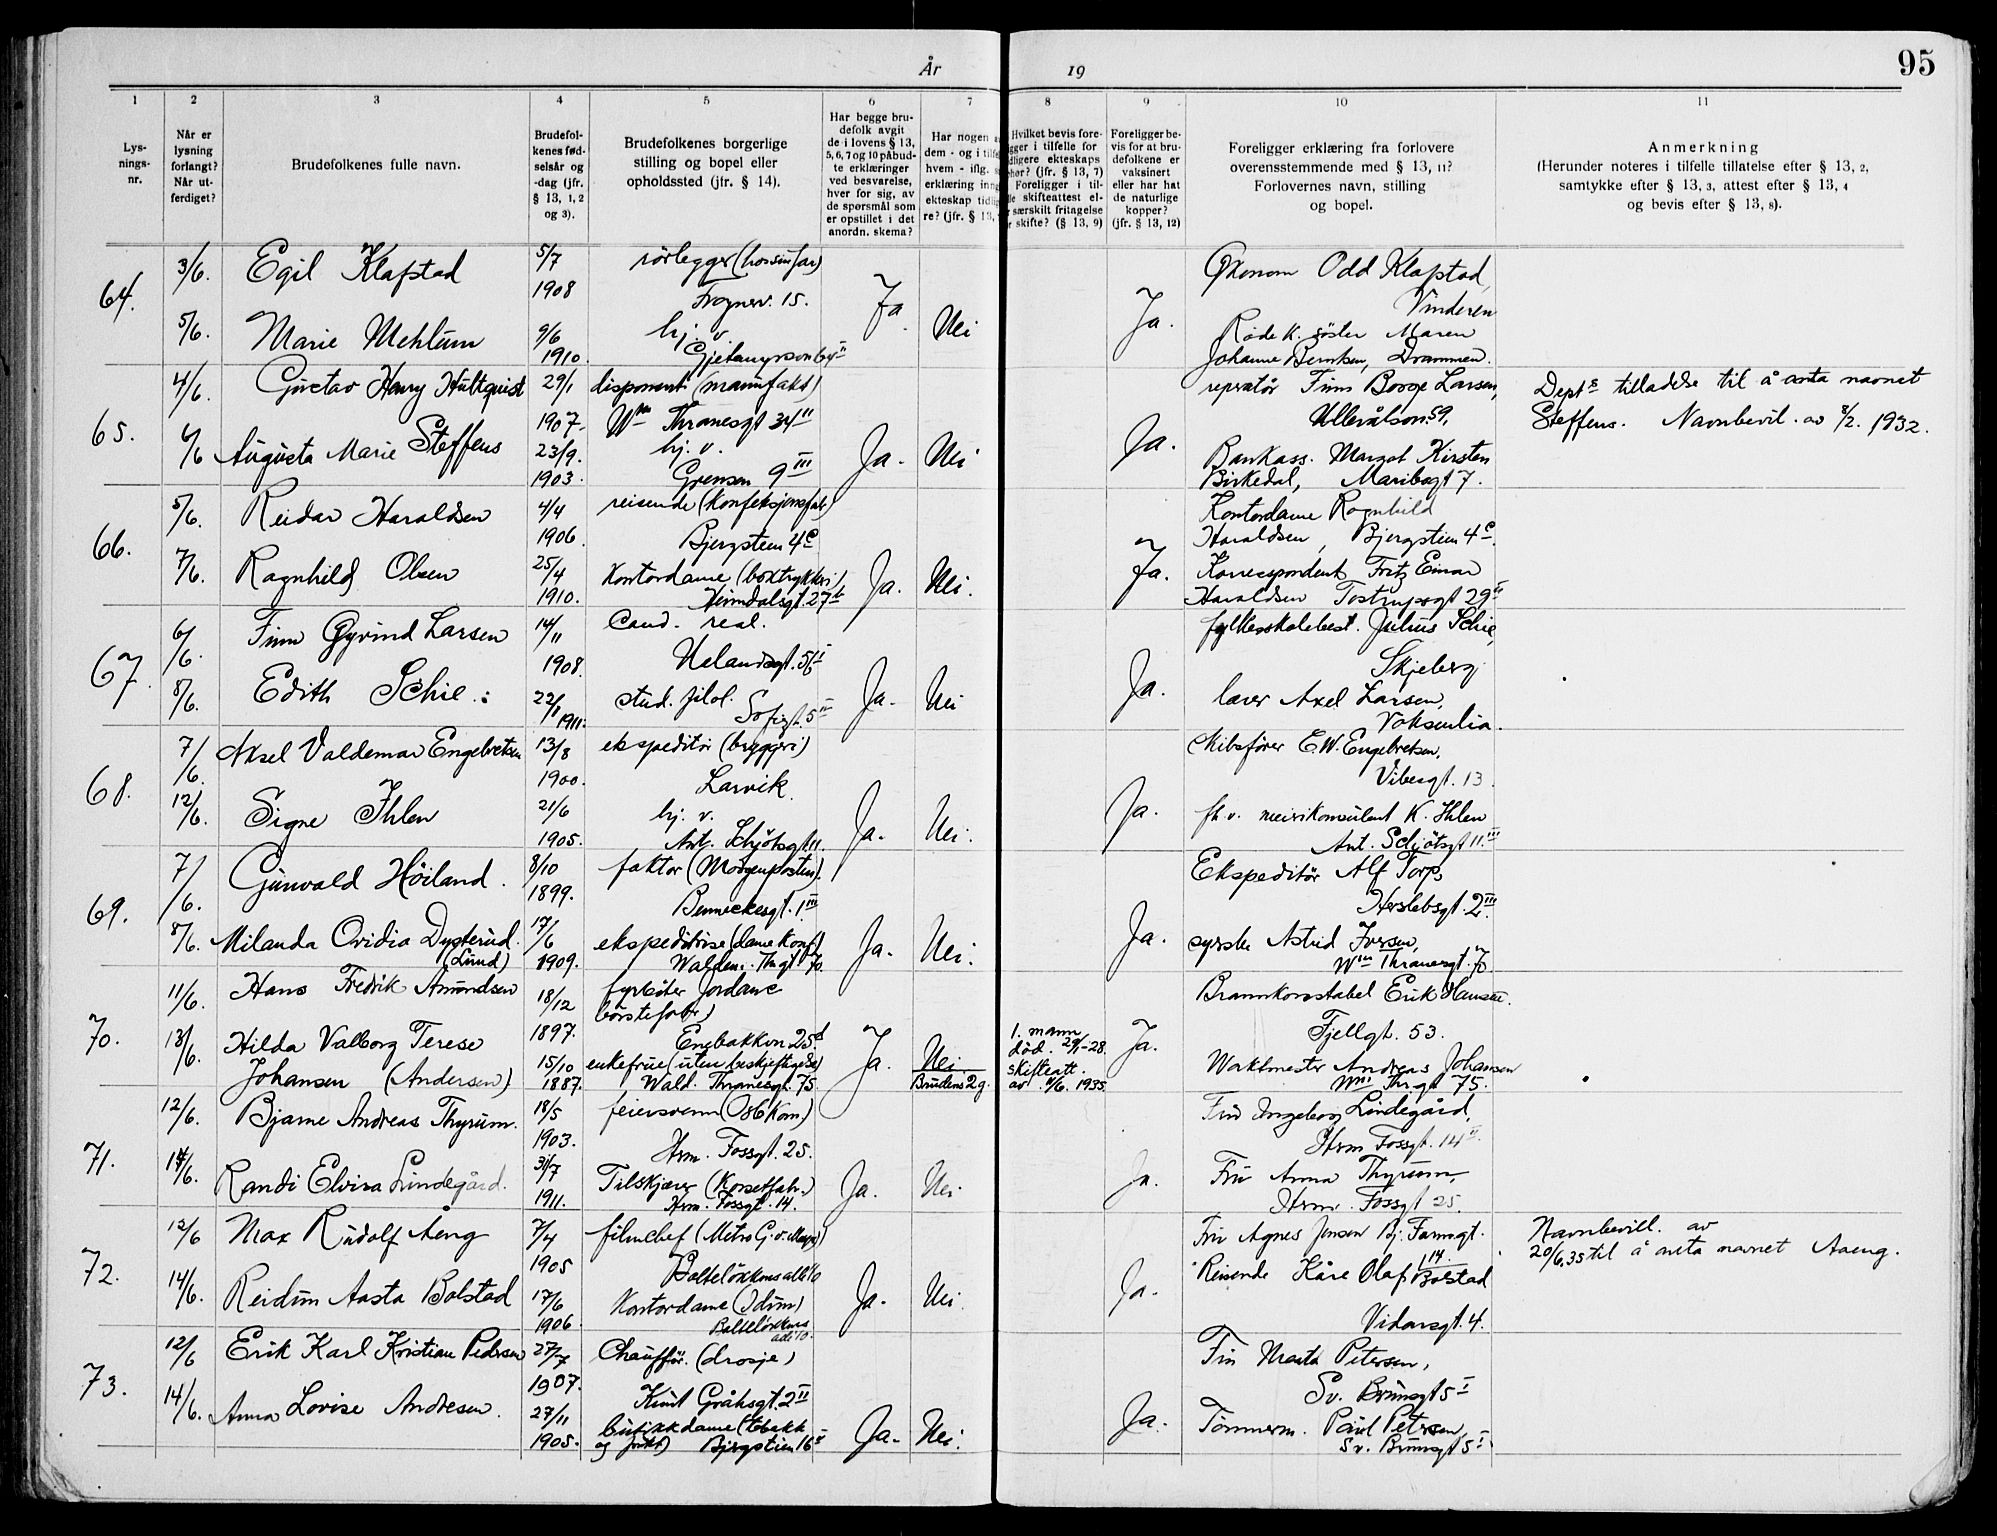 År 19
95
1 2 3 4 5 6 7 8 9 10 11
Lys-
nings-
nr.
Når er
lysning
forlangt?
Når ut-
ferdiget?
Brudefolkenes fulle navn.
Brudefol-
kenes fød-
selsår og
-dag (jfr.
§ 13, 1, 2
og 3).
Brudefolkenes borgerlige
stilling og bopel eller
opholdssted (jfr. § 14).
Har begge bru-
defolk avgit
de i lovens § 13,
5, 6, 7 og 10 påbud-
te erklæringer
ved besvarelse,
hver for sig, av
de spørsmål som
er opstillet i det
anordn. skema?
Har nogen a
dem - og i tilfe
hvem - iflg. s
erklæring inng
ekteskap tidlig
re? (jfr. § 13,
Hvilket bevis fore-
gger i tilfelle for
dligere ekteskaps
hør? (jfr. § 13, 7)
Foreligger i til-
lle skifteattest el-
r særskilt fritagelse
r skifte? (§ 13, 9)
Foreligger be-
vis for at bru-
defolkene er
vaksinert
eller har hat
de naturlige
kopper?
(jfr. § 13, 12)
Foreligger erklæring fra forlovere
overensstemmende med § 13, 11?
Forlovernes navn, stilling
og bopel.
Anmerkning
(Herunder noteres i tilfelle tillatelse efter § 13, 2,
samtykke efter § 13, 3, attest efter § 13, 4
og bevis efter § 13, 8).
64.
3/6. Egil Klafstad 5/7 1908 rörlegger (hos sin far)
Frognerv. 15.
5/6. Marie Mehlum 9/6 1910. hj. v.
Gjetemyrsv. 64 II
Ja Nei Ja.
Økonom Odd Klafstad,
Vinderen
Røde K. söster Maren
Johanne Berntsen, Drammen.
65.
4/6. Gustav Henry Hultquist 29/1 1907. disponent (manufakt)
Wm Thranesgt 34 II
6/6 Augusta Marie Steffens 23/9. 1903. hj. v.
Grensen 9 III
Ja. Nei Ja.
reprstör Finn Borge Larsen,
Ullevålsv. 59.
Bankass. Margot Kirsten
Birkedal, Maribogt 7.
Depts tilladelse til å anta navnet
Steffens. Navnbevil. av 8/2. 1932.
66.
5/6. Reidar Haraldsen 4/4 1906. reisende (konfeksjonsfab)
Bjergstien 4c
7/6. Ragnhild Olsen 25/4 1910. Kontordame (boktrykkeri)
Heimdalsgt. 27 b
Ja. Nei. Ja.
Kontordame Ragnhild
Haraldsen, Bjergstien 4c.
Korrespondent Fritz Einar
Haraldsen Tostrupsgt 29 II
67.
6/6. Finn Øyvind Larsen 14/11 1908. Cand. real.
Uelandsgt. 56 I
8/6. Edith Schie 22/1 1911. stud. filol.
Sofiegt. 5 II
Ja. Nei Ja.
fylkesskolebest. Julius Schie,
Skjeberg
lærer Axel Larsen,
Voksenlia.
68.
7/6. Aksel Valdemar Engebretsen 13/8 1900. ekspeditör (bryggeri)
Larvik
12/6. Signe Ihlen 21/6 1905. hj. v.
Ant. Schjötsgt 11.
Ja. Nei. Ja.
Skibsförer E. W. Engebretsen,
Vibesgt. 13
fh. v. meierikonsulent K. Ihlen
Ant. Schjötsgt 11. III
69.
7/6. Gunvald Höiland. 8/10 1899. faktor (Morgenposten).
Benneckesgt. 1 III
8/6. Milanda Ovidia Dysterud. 17/6 1909. ekspeditrise (dame konf.)
(Lund) Waldem. Th. gt 70.
Ja. Nei. Ja.
Ekspeditör Alf Torp,
Herslebsgt. 2 III.
syerske Astrid Iversen,
Wm Thranesgt. 70
70.
11/6. Hans Fredrik Amundsen 18/12 1897. fyrböter Jordans
börstefabr)
Enebakkvn 25 d
13/6. Hilda Valborg Terese 15/10 1887. enkefrue (uten beskjeftigelse)
Johansen (Andersen) Wald. Thranesgt. 75.
Ja. Nei.
Brudens 2 g.
1. mann
död. 29/1-28.
skifteatt.
av 4/6. 1935.
Ja.
Brannkonstabel Erik Hansen.
Fjellgt. 53.
Waktmester Andreas Johansen
Wm Thr.gt 75.
71.
12/6. Bjarne Andreas Thyrum. 18/5 1903. feiersvenn (Osl. Kom.)
Herm. Fossgt. 25.
14/6. Randi Elvira Lindegård. 31/7 1911. Tilskjærer (Korsettfabr.)
Herm. Fossgt. 14.
Ja. Nei Ja.
Fru Ingeborg Lindegård,
Herm Fossgt. 14 II.
Fru Anna Thyrum,
Herm. Fossgt 25.
72.
12/6 Max Rudolf Aeng 7/4 1905 filmchef (Metro G. v. Mayr)
Balteløkkens alle 10
14/6. Reidun Aasta Bolstad 17/6 1906. Kontordame (Idun)
Balteløkkens
alle 10.
Ja. Nei. Ja.
Fru Agnes Jensen Bj. Farmsgt.
14
Reisende Kåre Olaf Bolstad
Vidarsgt. 4.
Navnbevill. av
20/6.35 til å anta navnet Aaeng.
73.
12/6 Erik Karl Kristian Pedersen 27/7 1907. Chauffør. (drosje)
Knut Gråhsgt. 2 II
14/6. Anna Lovise Andresen. 27/11 1905. butikkdame (tobakk
og frukt) Bjergstien 16 II
Ja. Nei. Ja.
Fru Marta Petersen,
Sv. Brunsgt 5 I
Tömmerm. Paul Petersen,
Sv. Brunsgt 5 I